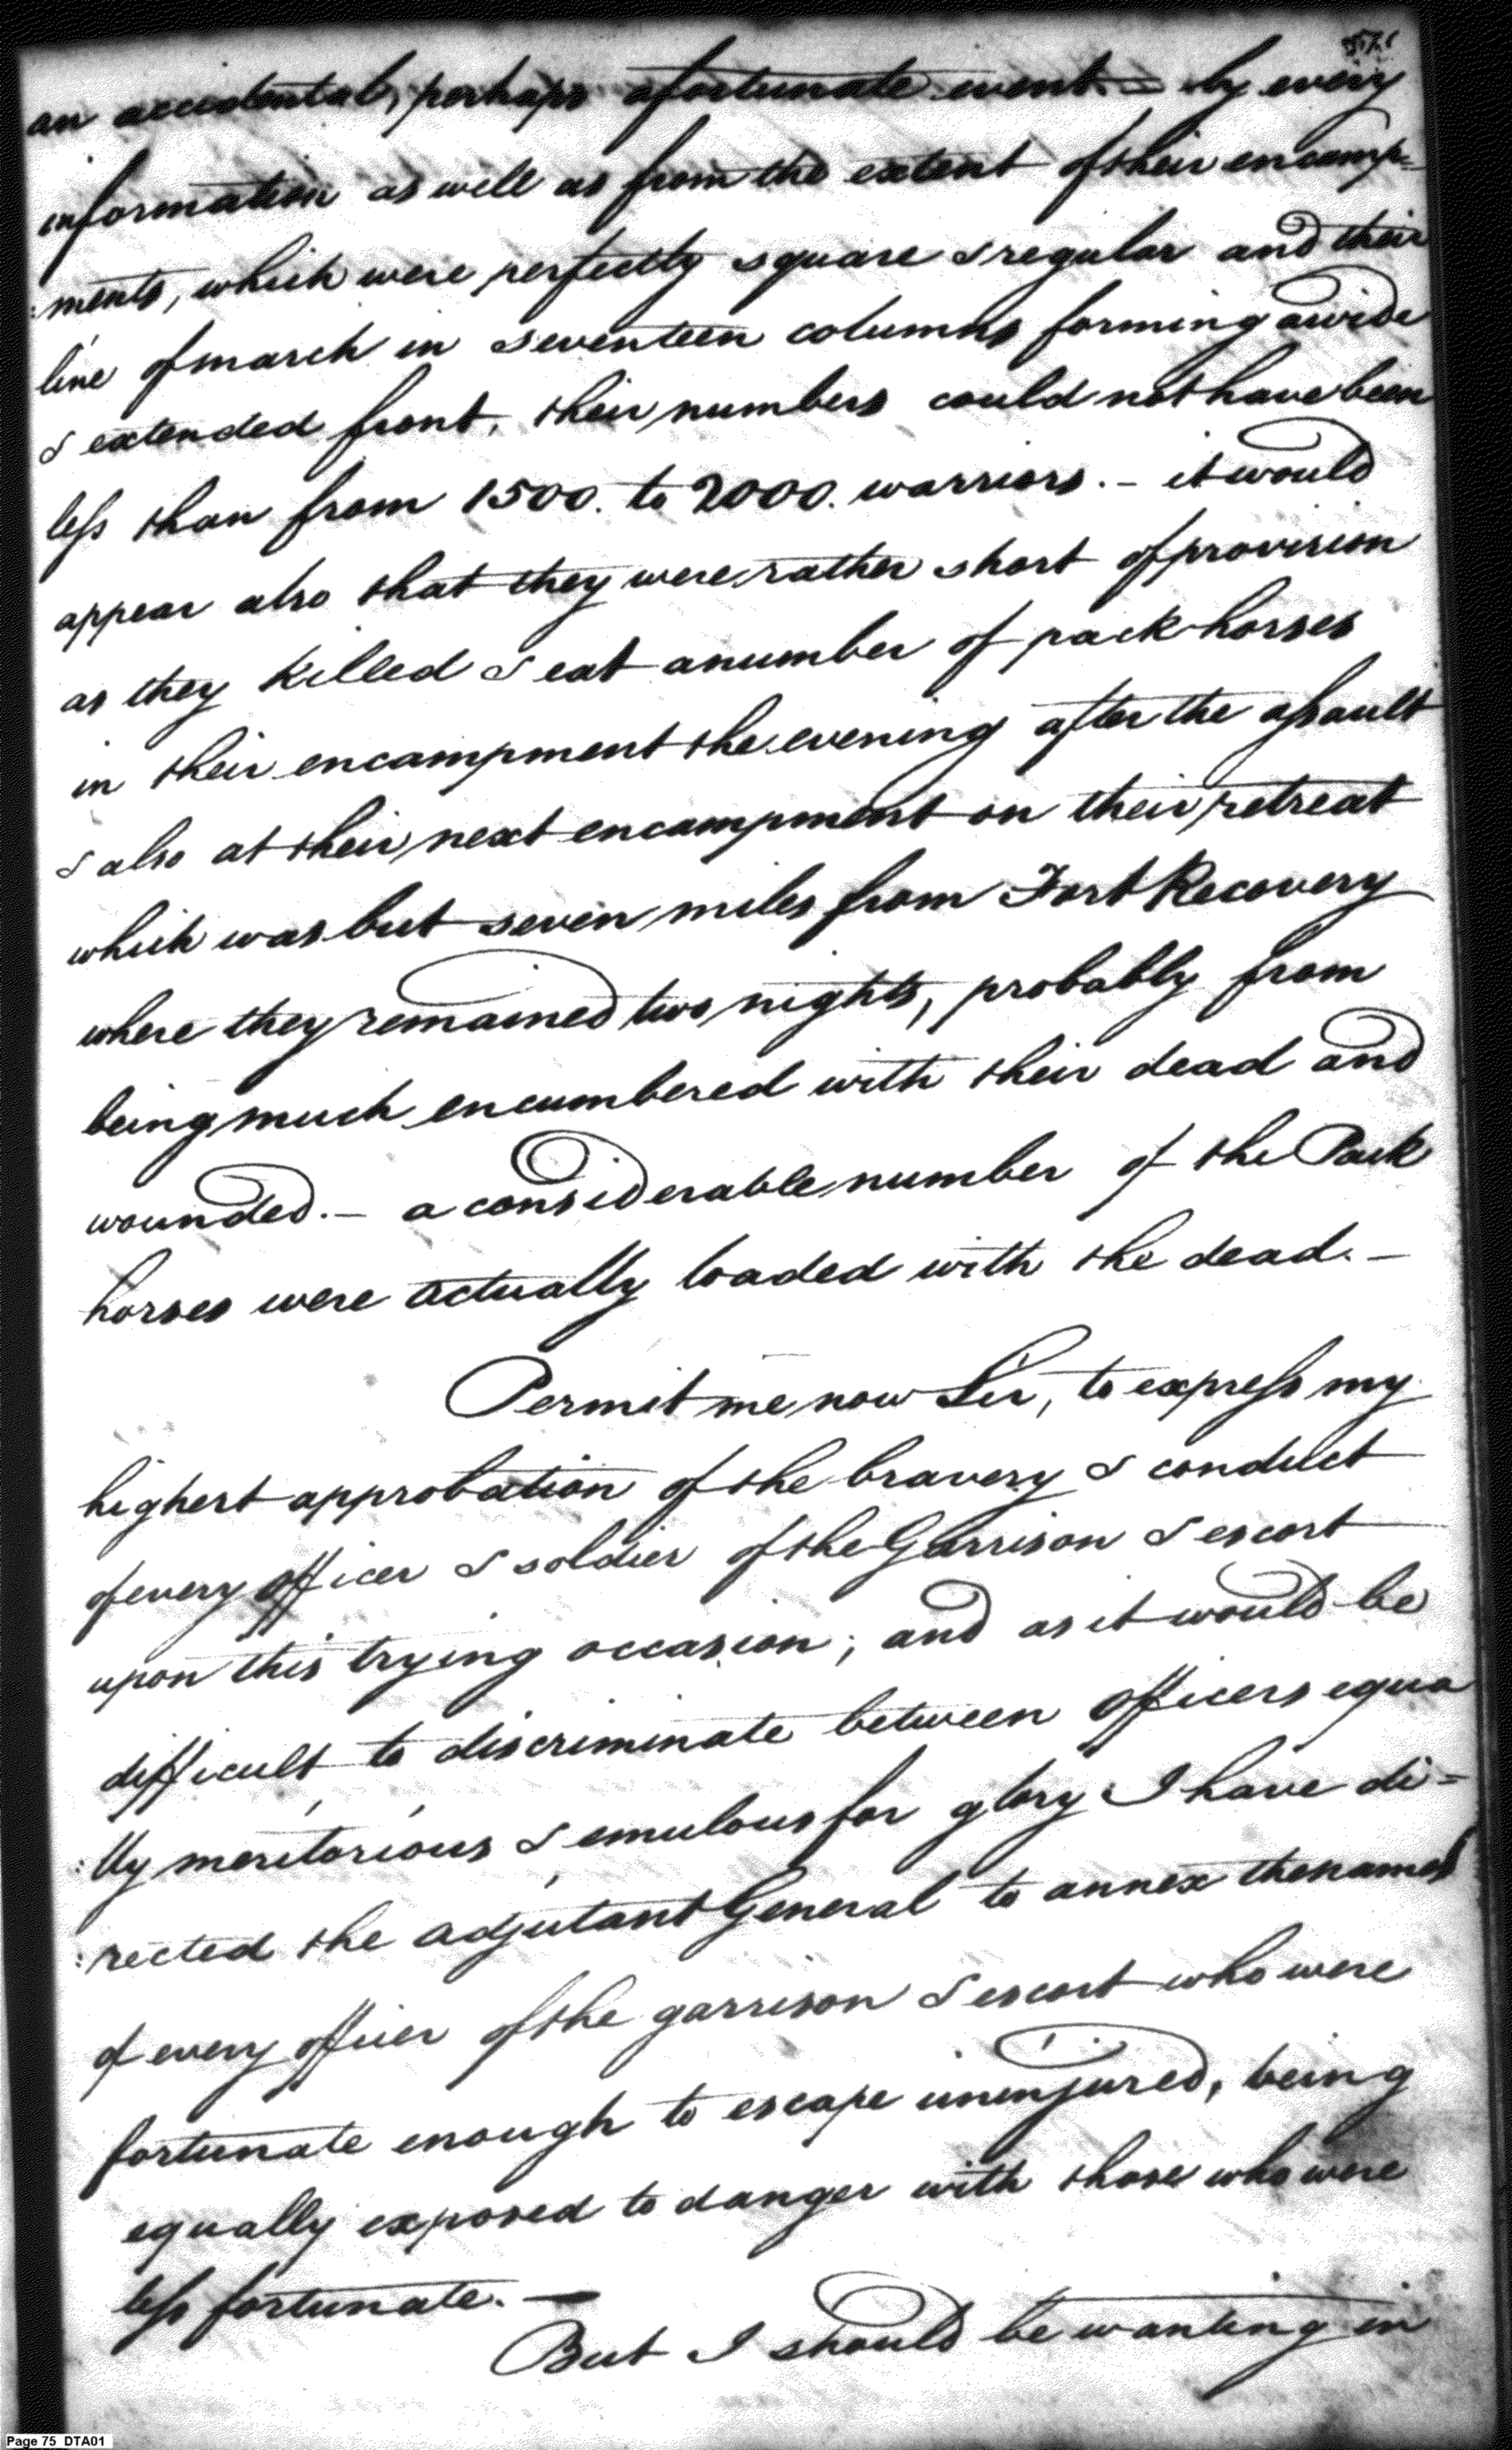 an accidental, perhaps a fortunate event – by every
information as well as from the extent of their encamp=
:ments, which were perfectly square & regular and their
line of march in seventeen columns forming a wide
& extended front, their numbers could not have been
less than from 1500. to 2000. warriors. – it would
appear also that they were rather short of provision
as they killed & eat a number of pack horses
in their encampment the evening after the assault
& also at their next encampment on their retreat
which was but seven miles from Fort Recovery
where they remained two nights, probably from
being much encumbered with their dead and
wounded. – a considerable number of the Pack
horses were actually loaded with the dead. –
Permit me now Sir, to express my
highest approbation of the bravery & conduct
of every officer & soldier of the Garrison & escort
upon this trying occasion; and as it would be
difficult to discriminate between officers equa
:lly meritorious & emulous for glory I have di=
:rected the adjutant General to annex the names
of every officer of the garrison & escort who were
fortunate enough to escape uninjured, being
equally exposed to danger with those who were
less fortunate. –
But I should be wanting in
Page 75 DTA01